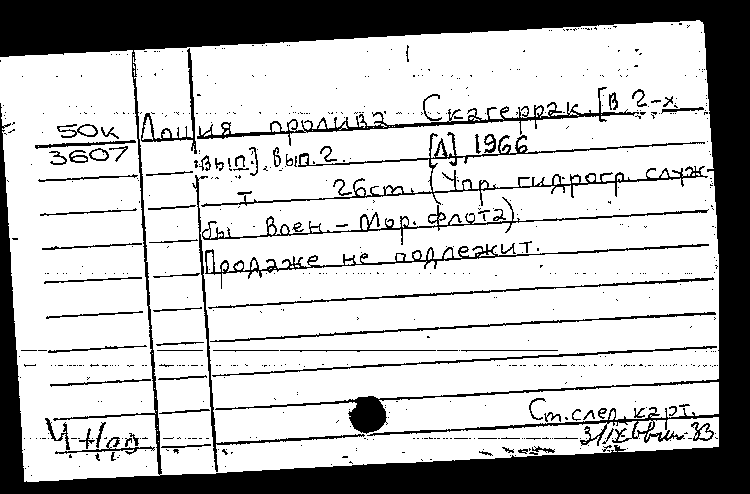 50к Лоция пролива Скагеррак. [В 2-х
3607 вып]. вып. 2. [Л], 1966
т. 26ст. (Упр. гидрогр. служ-
бы Воен.-Мор. флота).
Продаже не подлежит.
Ст. след. карт.